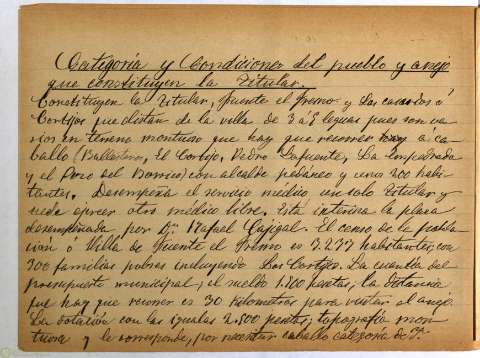 Categoría y Condiciones del pueblo y anejo
que constituyen la Titular.
Constituyen la Titular, Fuente el Fresno y Los caseríos ó
Cortijos que distan de la villa de 3 a 5 leguas pues son va-
rios en terreno montuoso que hay que recorrer á ca-
ballo (Ballestero, El Cortijo, Pedro Lafuente, La Empedrada
y el Pozo del Borrico) con alcalde pedáneo y unos 200 habi-
tantes. Desempeña el servicio médico un solo Titular y
puede ejercer otro médico libre. Está interina la plaza
desempeñada por Dn. Rafael Cajigal. El censo de la pobla-
ción ó Villa de Fuente el Fresno es 3.277 habitantes, con
300 familias pobres incluyendo Los Cortijos. La cuantía del
presupuesto municipal, el sueldo 1.700 pesetas, la distancia
que hay que recorrer es 30 kilometros para visitar el anejo.
La dotación con las igualas 2.500 pesetas; topografía mon-
tuosa y le corresponde, por necesitar caballo categoría de